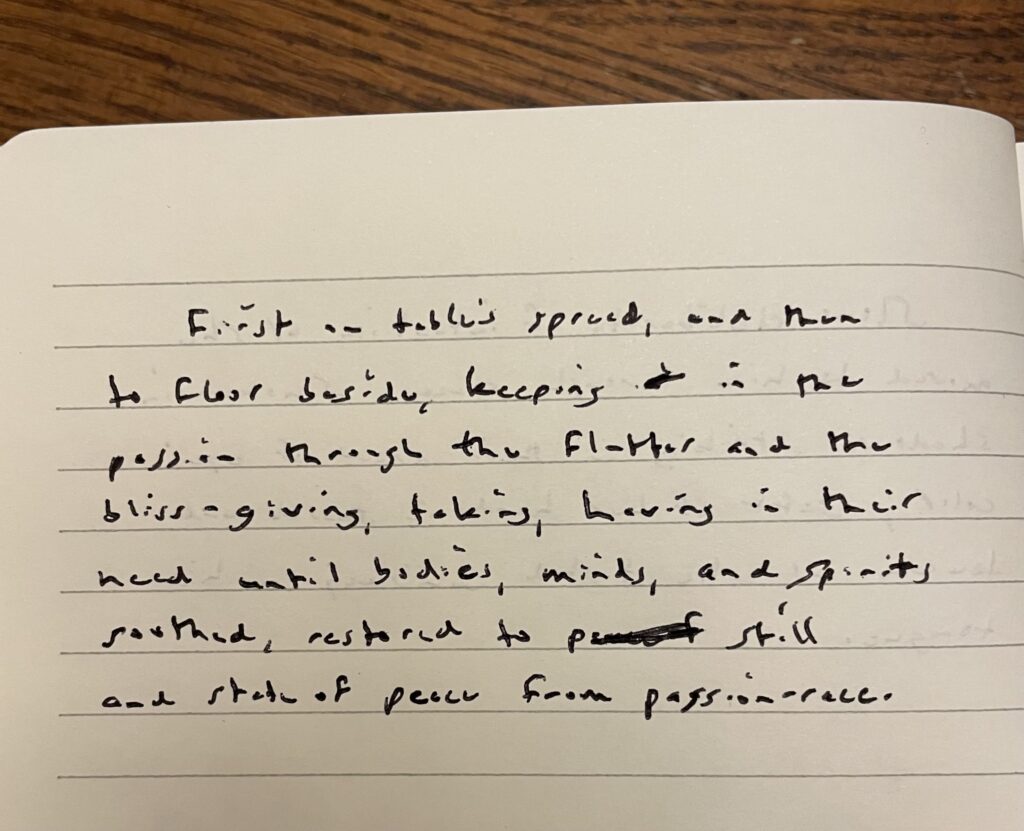 First on table's spread, and then
to floor beside, keeping in the
passion through the flutter and the
bliss-giving, taking, having in their
need until bodies, minds, and spirits
soothed, restored to still
and state of peace from passion-race.